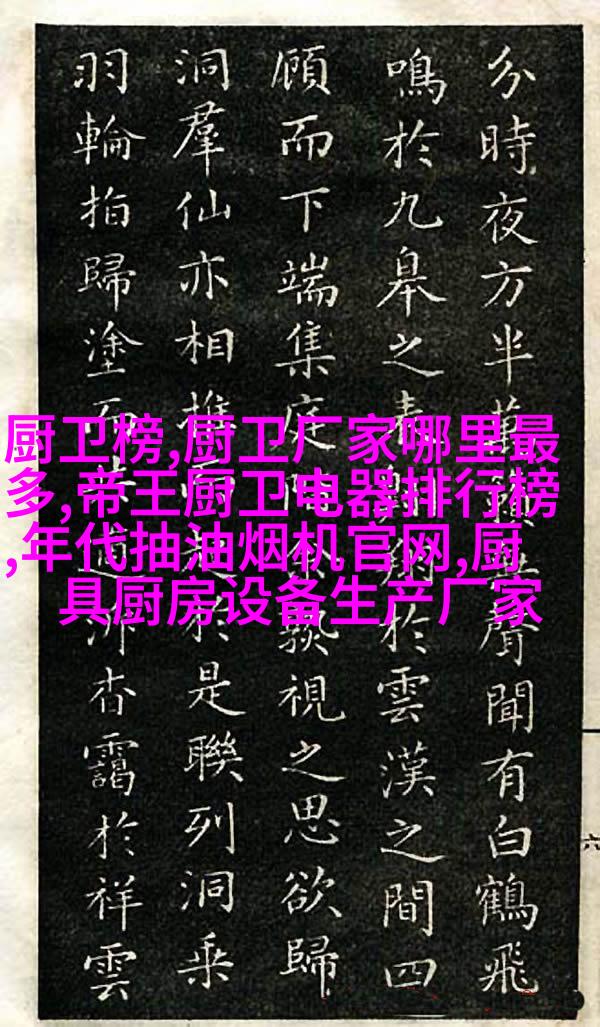 分時夜方半聲聞有白鶴飛
鳴於九皋之於雲漢之間四
顧而下端集庭視之思欲歸
洞羣仙亦相於是聯列洞乘
羽輪拍歸塗杳靄於祥雲
厨卫榜,厨卫厂家哪里最
多,帝王厨卫电器排行榜
,年代抽油烟机官网,厨
具厨房设备生产厂家
六